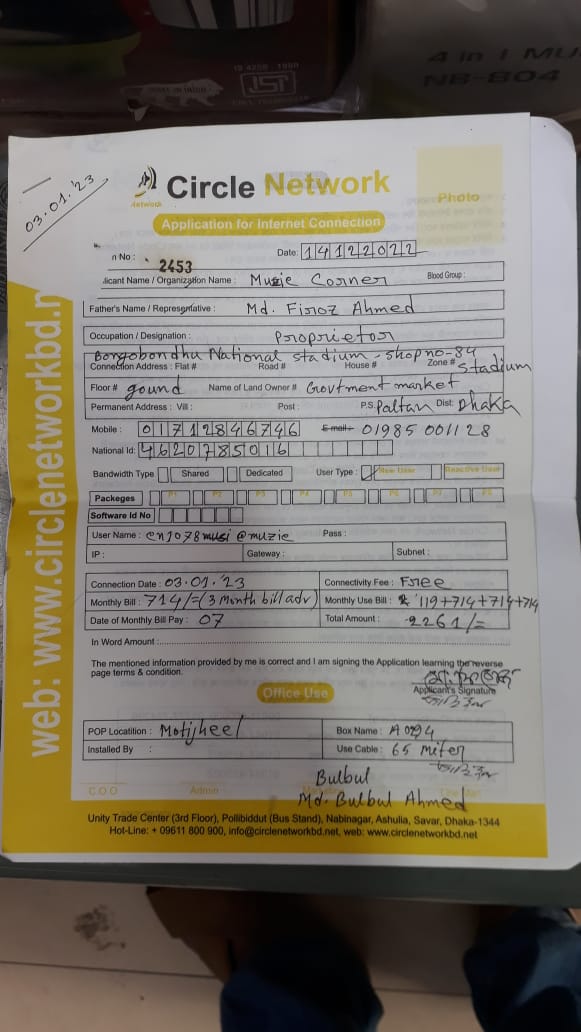 IS 4250 : 1980
ISI
MAKE IN INDIA
4 in 1 MU
NB-804
03.01.'23
Circle Network
Network
Photo
Application for Internet Connection
n No : 2453
Date: 14122022
licant Name / Organization Name : Muzie Corner
Blood Group :
Father's Name / Representative : Md. Firoz Ahmed
Occupation / Designation : Proprietor
Bongobondhu National stadium - shop no-84
Connection Address : Flat # Road # House # Zone # stadium
Floor # gound Name of Land Owner # Govtment market
Permanent Address : Vill : Post : P.S. Paltan Dist: Dhaka
Mobile : 01712846746 E-mail : 01985 001128
National Id: 4620785016
Bandwidth Type Shared Dedicated User Type : New User Reactive User
Packeges P1 P2 P3 P4 P5 P6 P7 P8
Software Id No
User Name : cn1078musi@muzie Pass :
IP : Gateway : Subnet :
Connection Date : 03.01.'23 Connectivity Fee : Free
Monthly Bill : 714/= (3 Month bill adv) Monthly Use Bill : 119+714+714+714
Date of Monthly Bill Pay : 07 Total Amount : 2261/=
In Word Amount :
The mentioned information provided by me is correct and I am signing the Application learning the reverse
page terms & condition.
Applicant's Signature
Office Use
POP Locatition : Motijheel Box Name : A0294
Installed By : Use Cable : 65 miter
Bulbul
C.O.O Admin
Md. Bulbul Ahmed
Unity Trade Center (3rd Floor), Pollibiddut (Bus Stand), Nabinagar, Ashulia, Savar, Dhaka-1344
Hot-Line: + 09611 800 900, info@circlenetworkbd.net, web: www.circlenetworkbd.net
web: www.circlenetworkbd.n